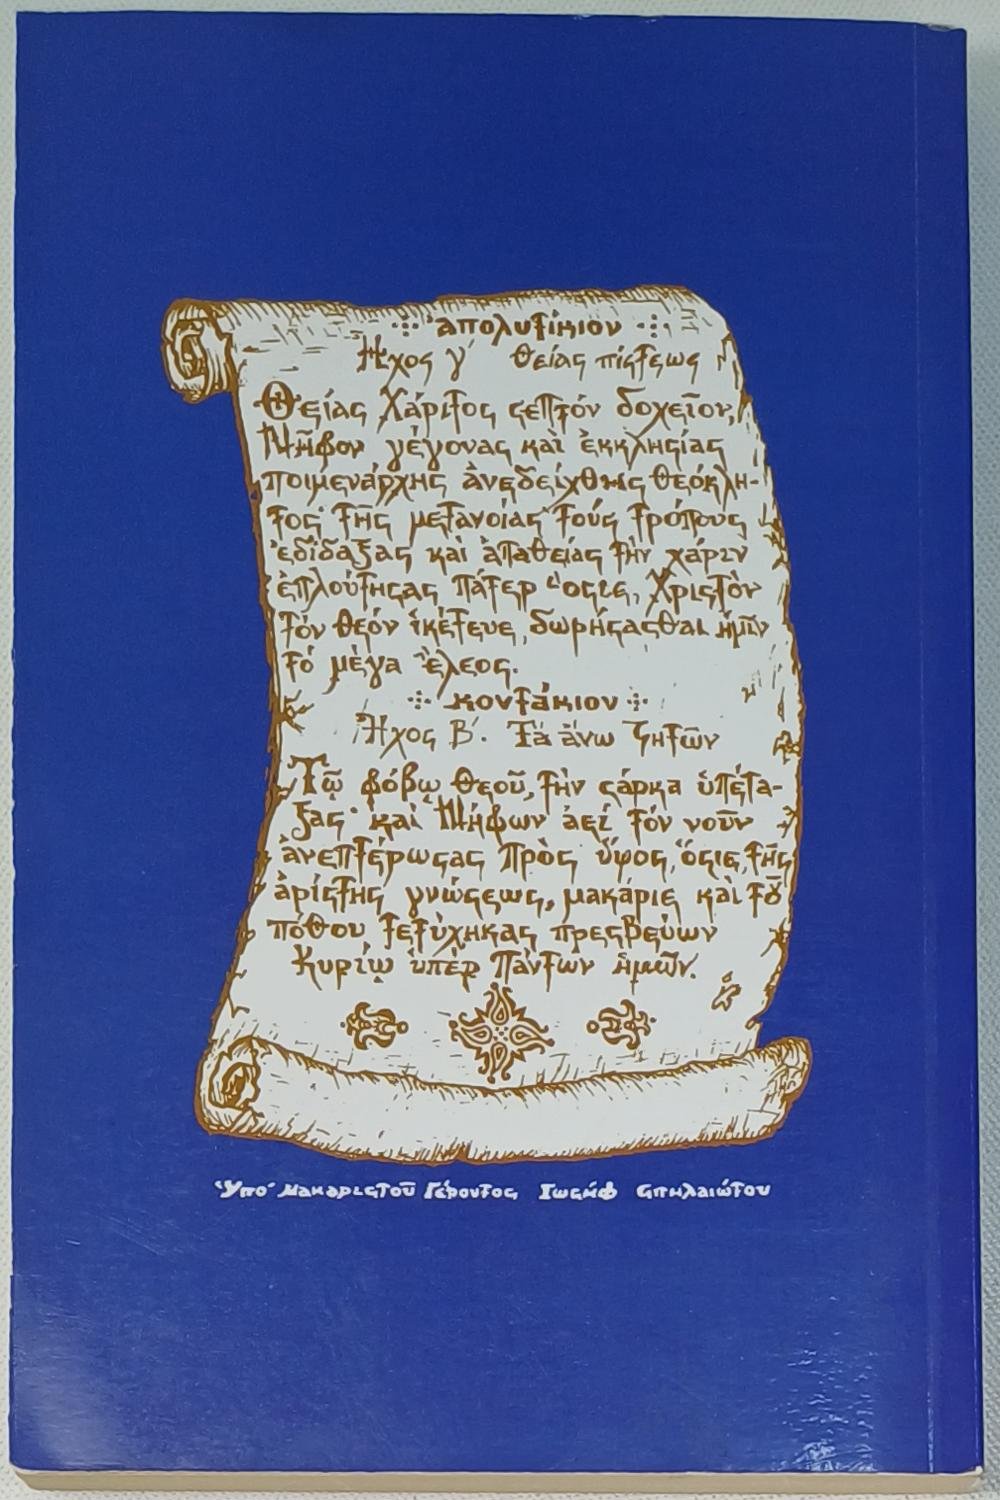 Ἀπολυτίκιον
Ἦχος γ΄ Θείας πίστεως
Θείας Χάριτος σεπτόν δοχεῖον,
Νῆφον γέγονας καὶ ἐκκλησίας
ποιμενάρχης ἀνεδείχθης θεόκλη-
τος· τῆς μετανοίας τούς τρόπους
ἐδίδαξας καὶ ἀπαθείας τὴν χάριν
ἐπλούτησας Πάτερ Ὅσιε, Χριστὸν
τόν Θεόν ἱκέτευε, δωρήσασθαι ἡμῖν
τό μέγα ἔλεος.
Κοντάκιον
Ἦχος Β΄. Τὰ ἄνω ζητῶν
Τῷ φόβῳ Θεοῦ, τὴν σάρκα ὑπέτα-
ξας· καὶ Νήφων ἀεί τόν νοῦν
ἀνεπτέρωσας πρὸς ὕψος, ὅσιε, τῆς
ἀρίστης γνώσεως, μακάριε καὶ τοῦ
πόθου τετύχηκας πρεσβεύων
Κυρίῳ ὑπέρ πάντων ἡμῶν.
Ὑπό Μακαριστοῦ Γέροντος Ἰωσήφ Σπηλαιώτου